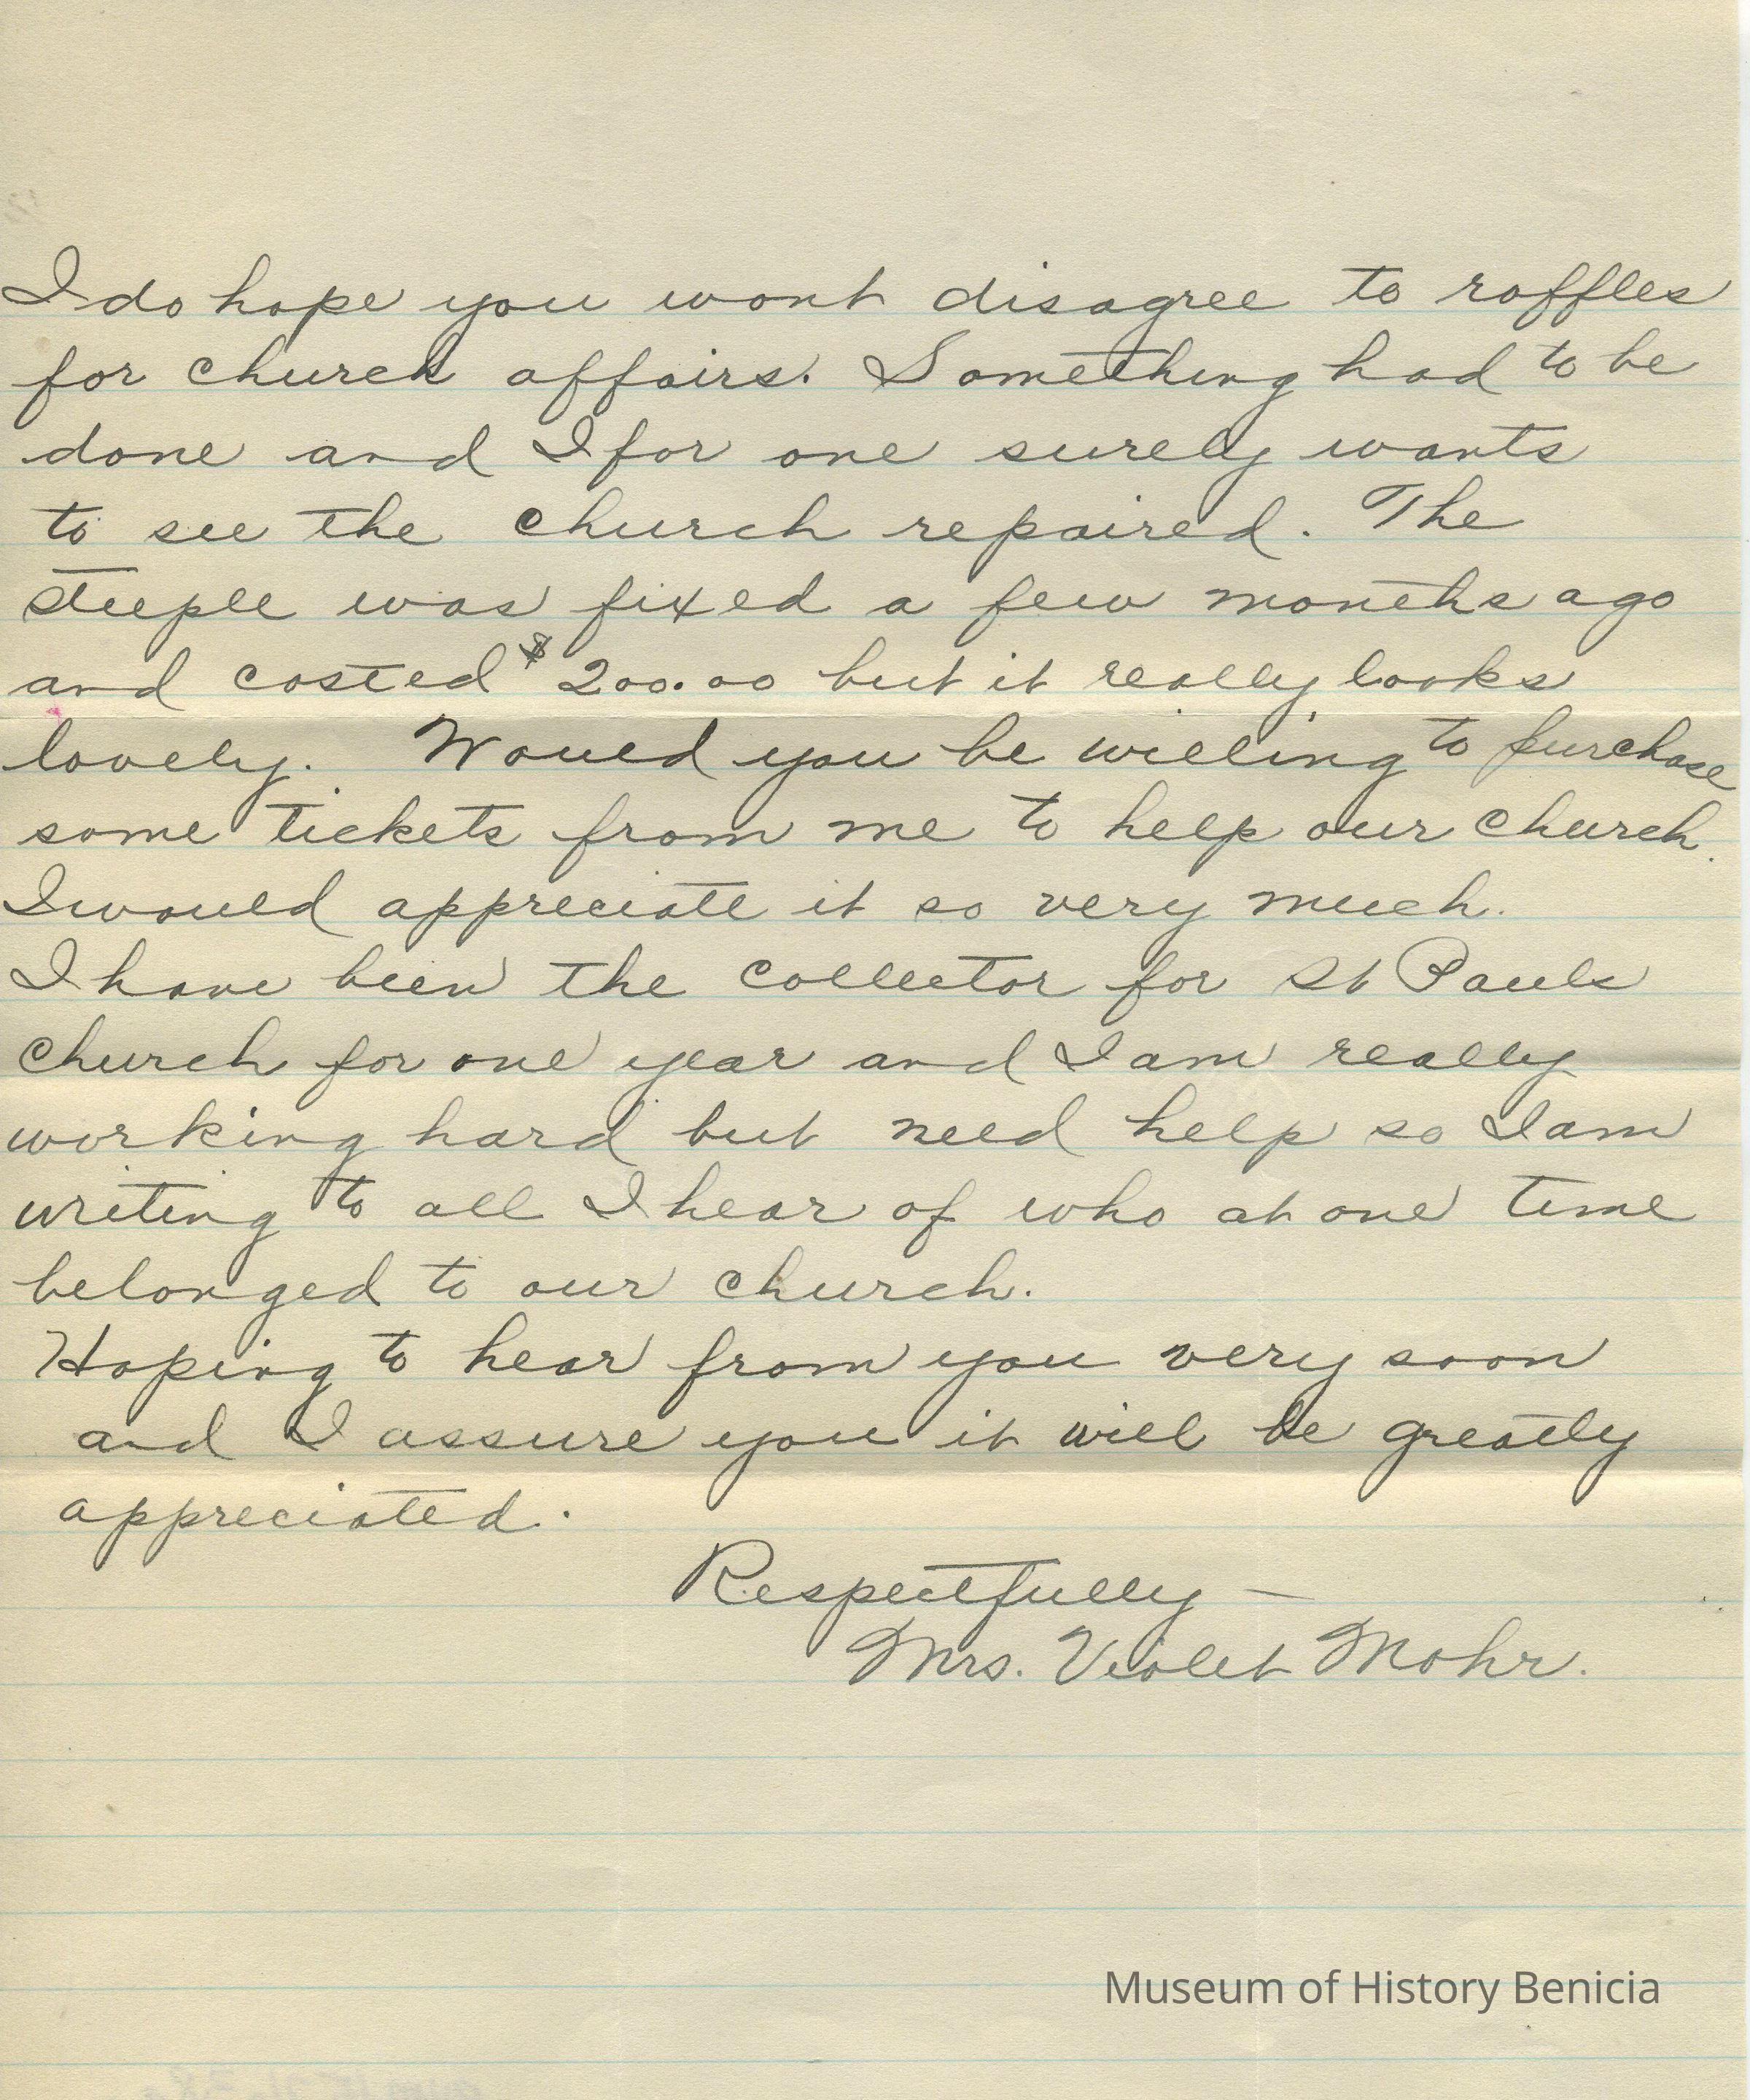 I do hope you wont disagree to raffles
for church affairs. Something had to be
done and I for one surely wants
to see the church repaired. The
steeple was fixed a few months ago
and costed $200.00 but it really looks
lovely. Would you be willing to purchase
some tickets from me to help our church.
I would appreciate it so very much.
I have been the collector for St Pauls
church for one year and I am really
working hard but need help so I am
writing to all I hear of who at one time
belonged to our church.
Hoping to hear from you very soon
and I assure you it will be greatly
appreciated.
Respectfully —
Mrs. Violet Mohr.
Museum of History Benicia